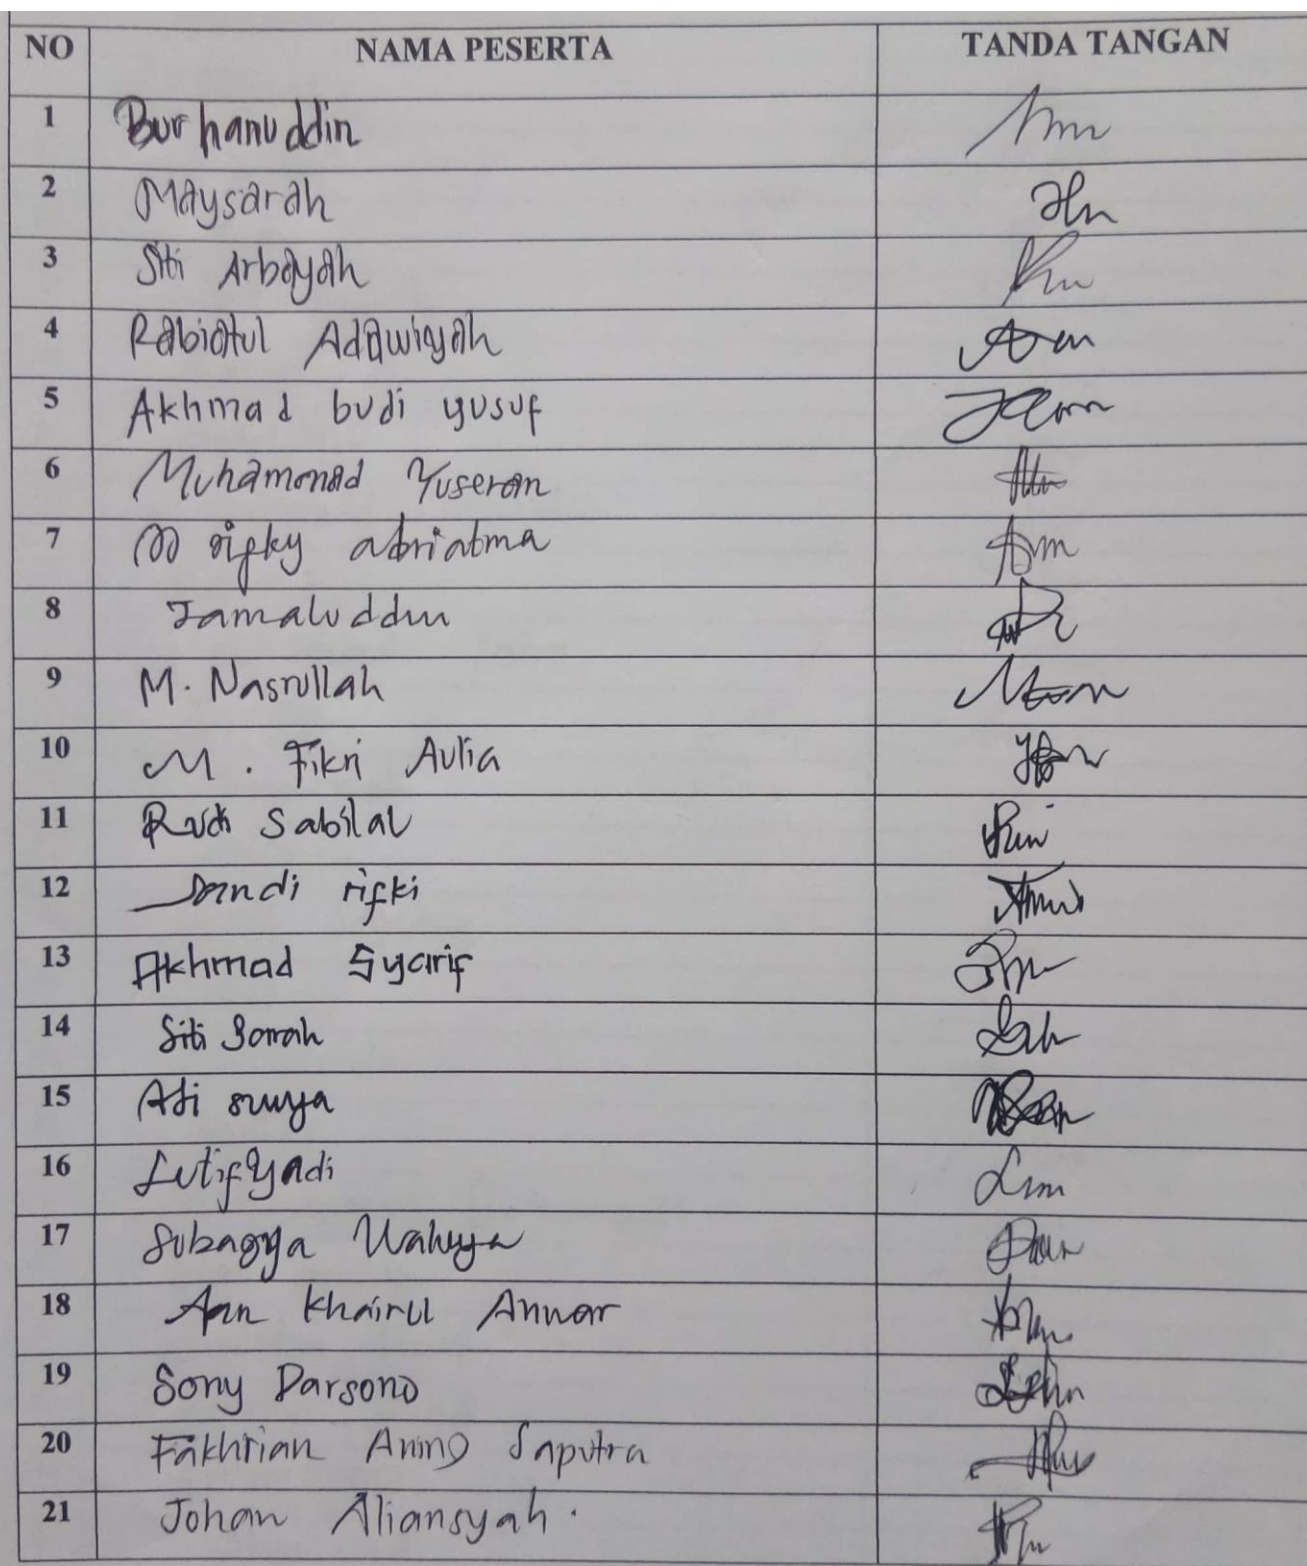 NO NAMA PESERTA TANDA TANGAN
1 Burhanuddin
2 Maysarah
3 Siti Arbayah
4 Rabiatul Adawiyah
5 Akhmad budi yusuf
6 Muhammad Yuseran
7 M rifky abriatma
8 Jamaluddin
9 M. Nasrullah
10 M. Fikri Aulia
11 Rudi Sabilal
12 Sandi rifki
13 Akhmad Syarif
14 Siti
15 surya
16 Lutifyadi
17 Subagya
18 Aan Khairul Anwar
19 Sony Darsono
20 Fakhrian Saputra
21 Johan Aliansyah.